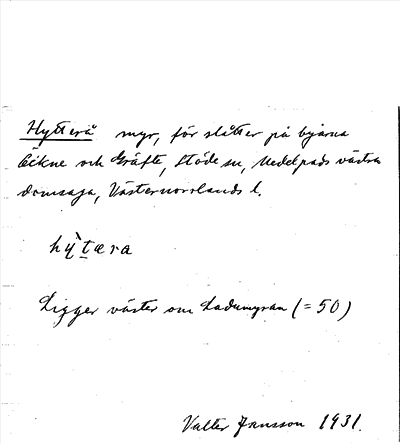 Hytterå myr, för slåtter på byarna
Lökne och Gräfte, Stöde sn, Medelpads västra
domsaga, Västernorrlands l.
hỳtæra
Ligger väster om Ladumyran (= 50)
Valter Jansson 1931.